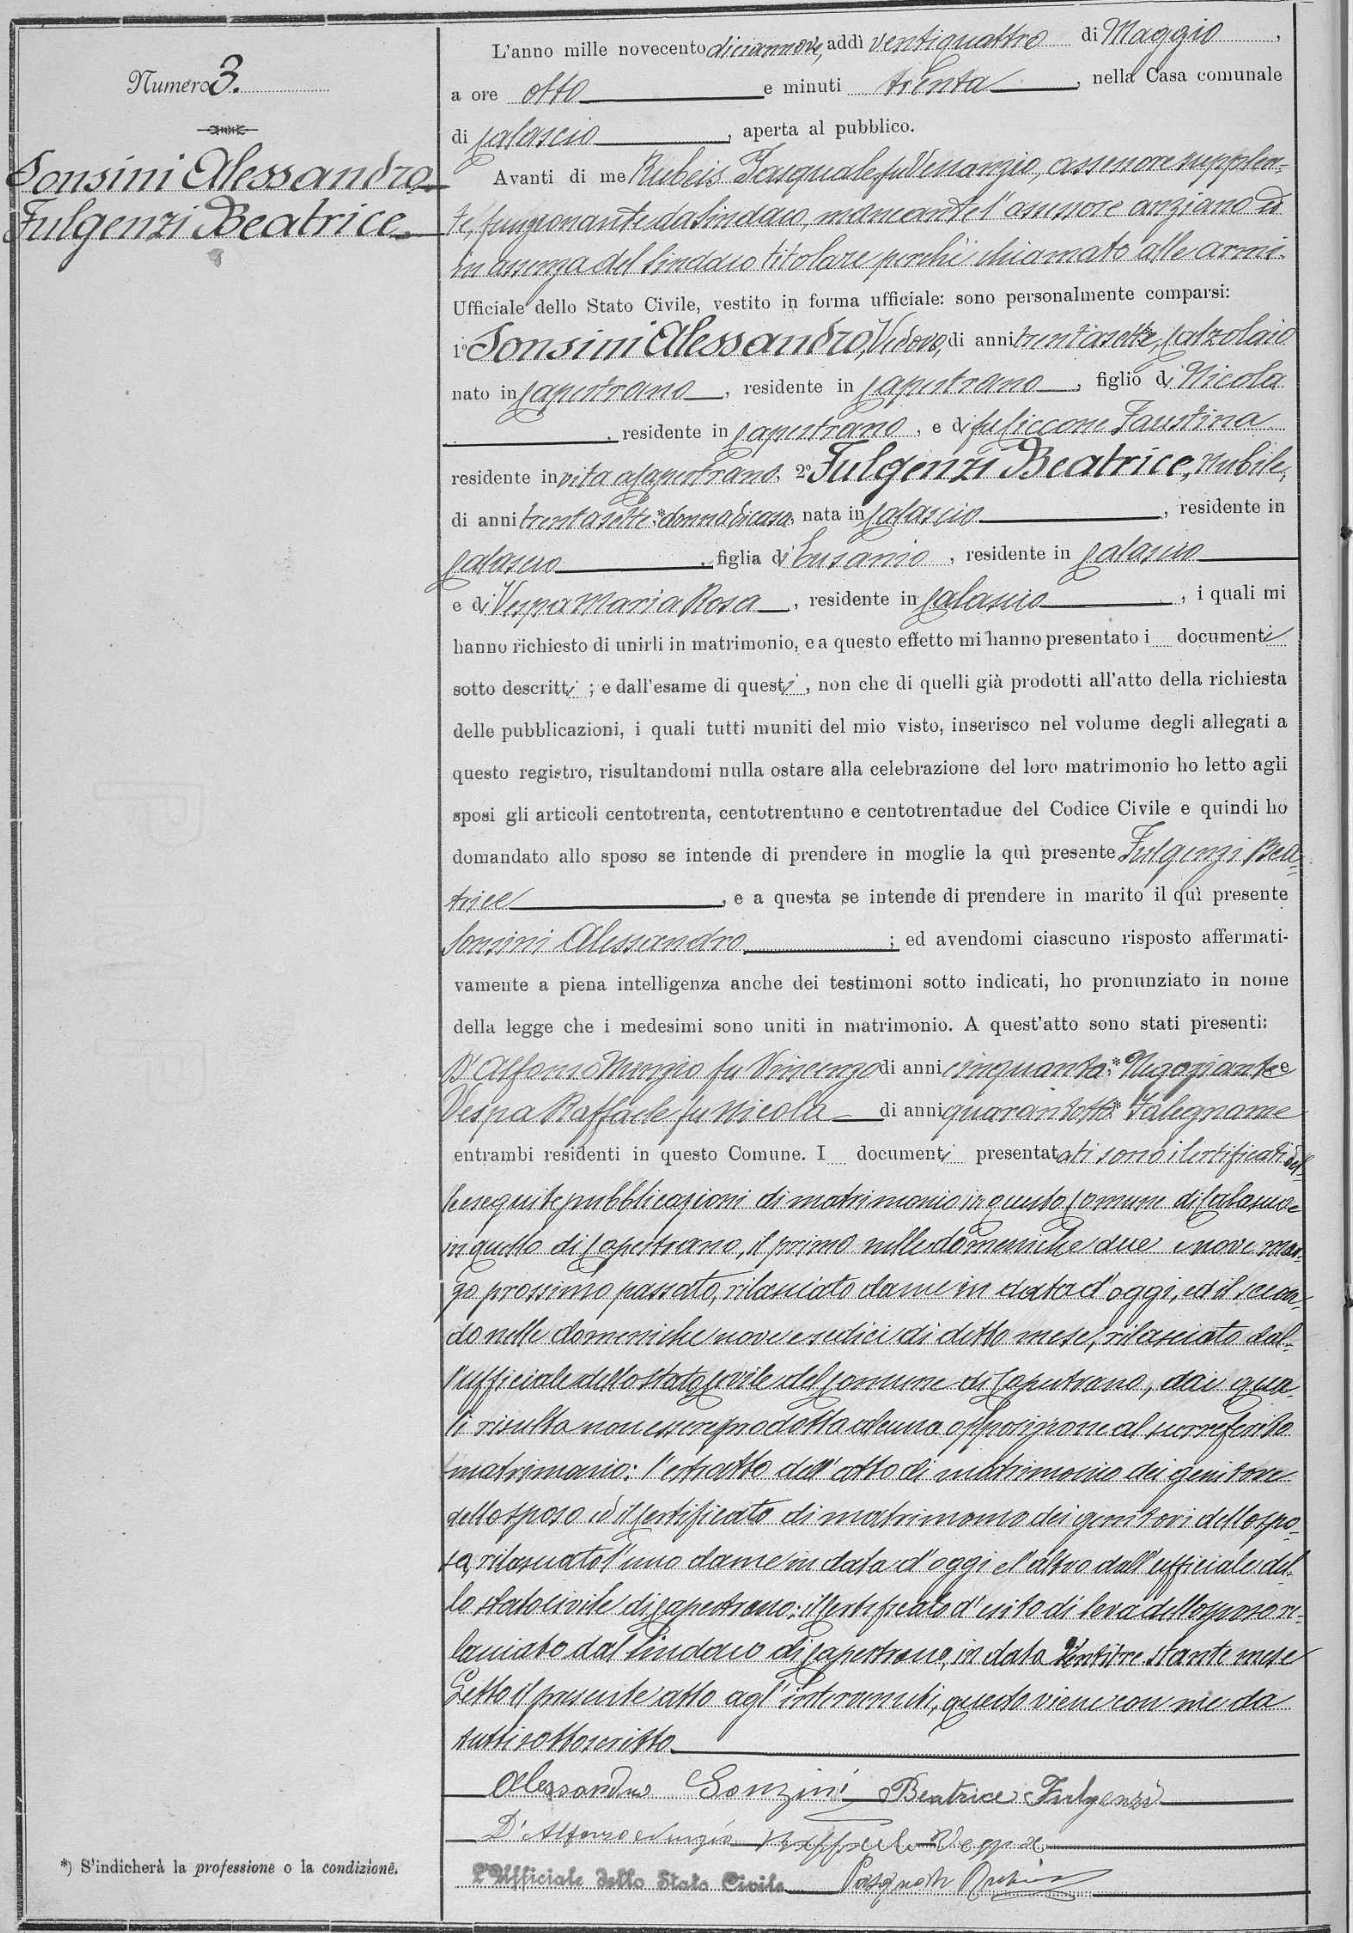 Numero 3.
Sonsini Alessandro
Fulgenzi Beatrice
L'anno mille novecento diciannove, addì ventiquattro di Maggio,
a ore otto e minuti trenta, nella Casa comunale
di Calascio, aperta al pubblico.
Avanti di me Rubeis Pasquale fu Venanzio, assessore supplen-
te, funzionante da Sindaco, mancante l'assessore anziano ed
in assenza del Sindaco titolare perchè chiamato alle armi.
Ufficiale dello Stato Civile, vestito in forma ufficiale: sono personalmente comparsi:
1º Sonsini Alessandro, Vedovo, di anni trentasette, Calzolaio
nato in Capestrano, residente in Capestrano, figlio di Nicola
, residente in Capestrano, e di fu Ciccone Faustina
residente in vita a Capestrano. 2º Fulgenzi Beatrice, Nubile,
di anni trentasette * donna di casa, nata in Calascio, residente in
Calascio, figlia di Eusanio, residente in Calascio
e di Vespa Maria Rosa, residente in Calascio, i quali mi
hanno richiesto di unirli in matrimonio, e a questo effetto mi hanno presentato i documenti
sotto descritti; e dall'esame di questi, non che di quelli già prodotti all'atto della richiesta
delle pubblicazioni, i quali tutti muniti del mio visto, inserisco nel volume degli allegati a
questo registro, risultandomi nulla ostare alla celebrazione del loro matrimonio ho letto agli
sposi gli articoli centotrenta, centotrentuno e centotrentadue del Codice Civile e quindi ho
domandato allo sposo se intende di prendere in moglie la quì presente Fulgenzi Bea-
trice, e a questa se intende di prendere in marito il quì presente
Sonsini Alessandro; ed avendomi ciascuno risposto affermati-
vamente a piena intelligenza anche dei testimoni sotto indicati, ho pronunziato in nome
della legge che i medesimi sono uniti in matrimonio. A quest'atto sono stati presenti:
D'Alfonso Nunzio fu Vincenzo di anni cinquanta,* Negoziante e
Vespa Raffaele fu Nicola di anni quarantotto * Falegname
entrambi residenti in questo Comune. I documenti presentati sono i certificati del-
le eseguite pubblicazioni di matrimonio in questo Comune di Calascio e
in quello di Capestrano, il primo nelle domeniche due e nove mar-
zo prossimo passato, rilasciato da me in data d'oggi, ed il secon-
do nelle domeniche nove e sedici di detto mese, rilasciato dal-
l'ufficiale dello stato civile del Comune di Capestrano, dai qua-
li risulta non essere prodotta alcuna opposizione al surreferito
matrimonio: l'estratto dell'atto di matrimonio dei genitori
dello sposo ed il certificato di matrimonio dei genitori della spo-
sa, rilasciato l'uno da me in data d'oggi e l'altro dall'ufficiale del-
lo stato civile di Capestrano: il certificato d'esito di leva dello sposo ri-
lasciato dal Sindaco di Capestrano, in data ventitre stante mese
Letto il presente atto agl'intervenuti, questo viene con me da
tutti sottoscritto
Alessandro Sonzini Beatrice Fulgenzi
D'Alfonso Nunzio Raffaele Vespa
L'Ufficiale dello Stato Civile Pasquale Rubeis
*) S'indicherà la professione o la condizione.